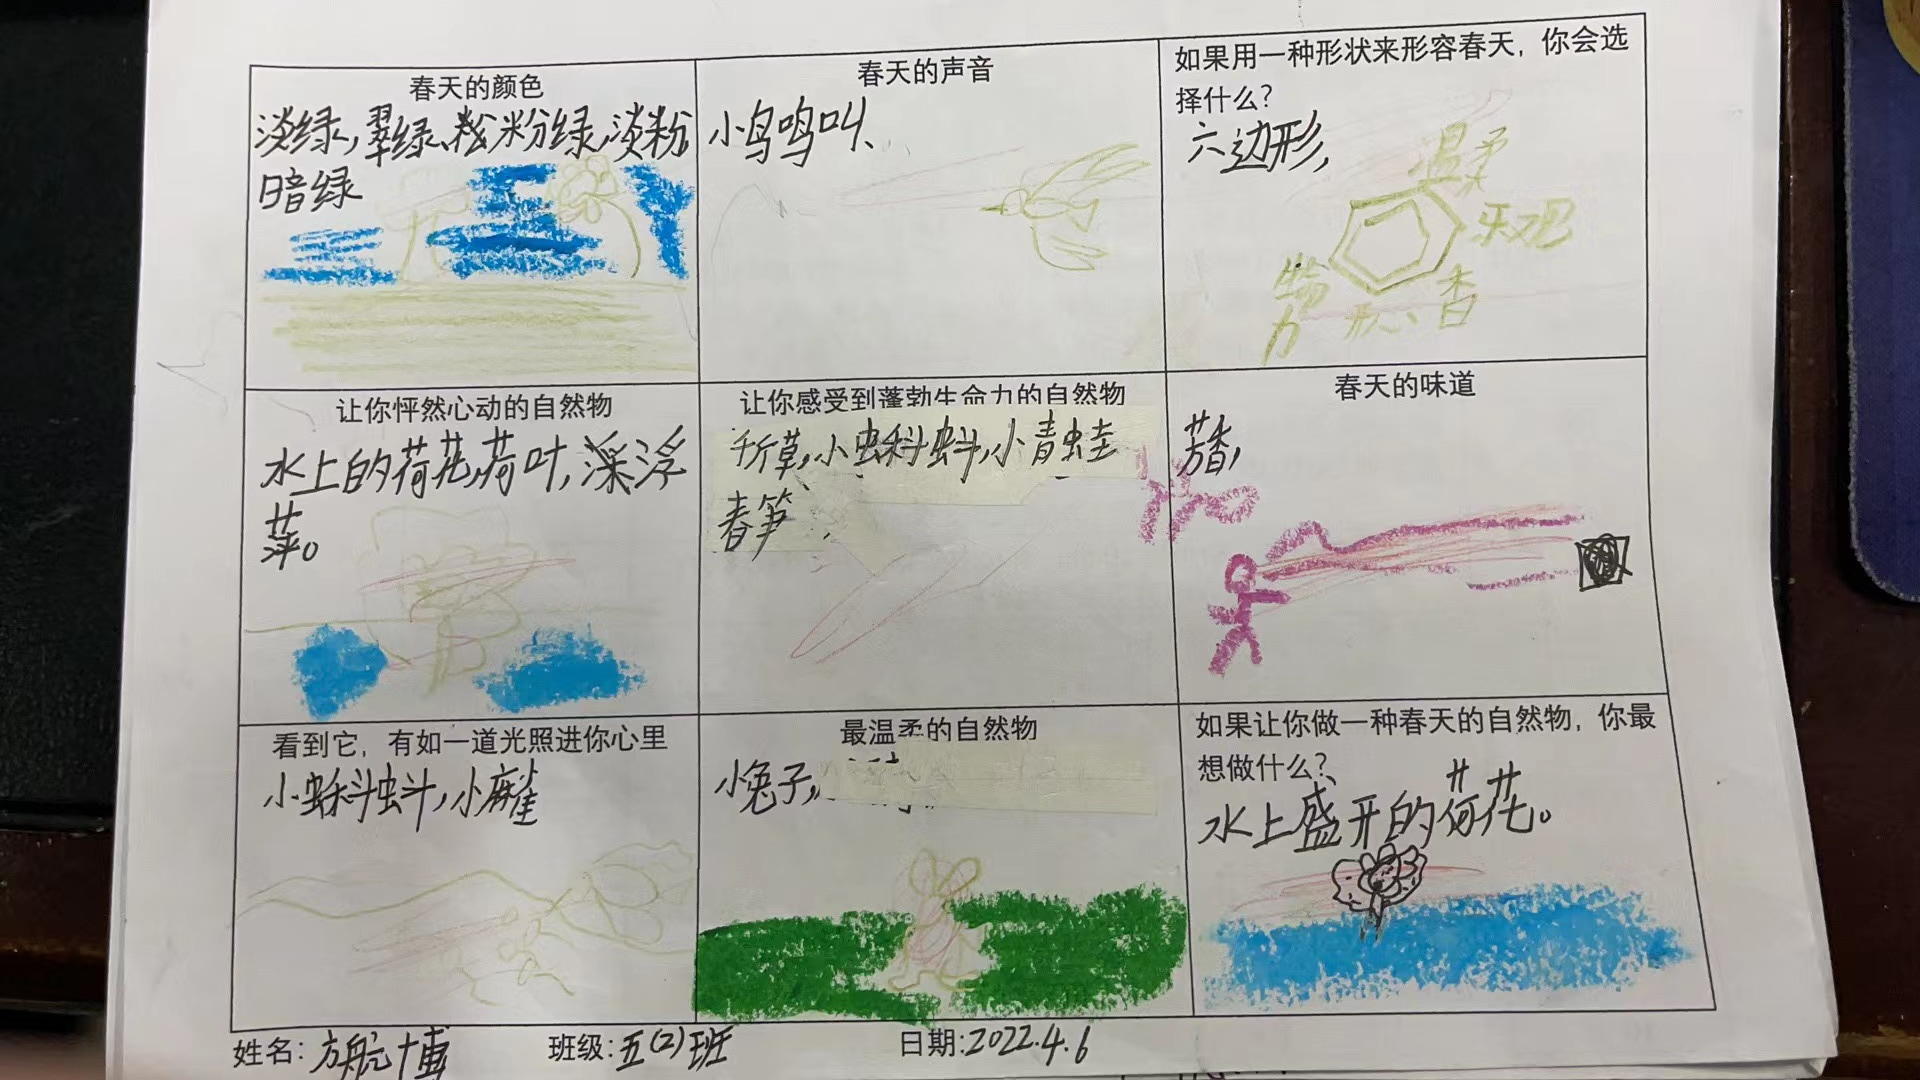 春天的颜色
淡绿,翠绿、粉绿,淡粉
暗绿
春天的声音
小鸟鸣叫、
如果用一种形状来形容春天，你会选
择什么?
六边形,
温柔
乐观
香
力
让你怦然心动的自然物
水上的荷花,荷叶,浮
萍。
让你感受到蓬勃生命力的自然物
小蝌蚪,小青蛙
春笋
春天的味道
芳香,
看到它，有如一道光照进你心里
小蝌蚪,小麻雀
最温柔的自然物
小兔子,
如果让你做一种春天的自然物，你最
想做什么?
水上盛开的荷花。
姓名: 方航博
班级: 五(2)班
日期: 2022.4.6